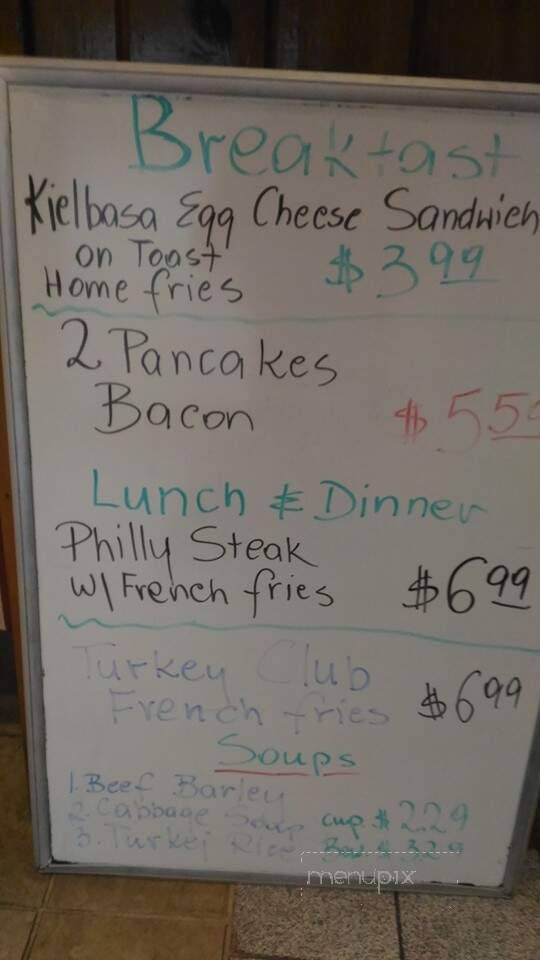 Breakfast
Kielbasa Egg Cheese Sandwich
on Toast $3.99
Home fries
2 Pancakes
Bacon $5.5
Lunch & Dinner
Philly Steak
w/ French fries $6.99
Turkey Club
French fries $6.99
Soups
1. Beef Barley
2. Cabbage Soup cup $2.29
3. Turkey Rice Bowl $3.29
menupix